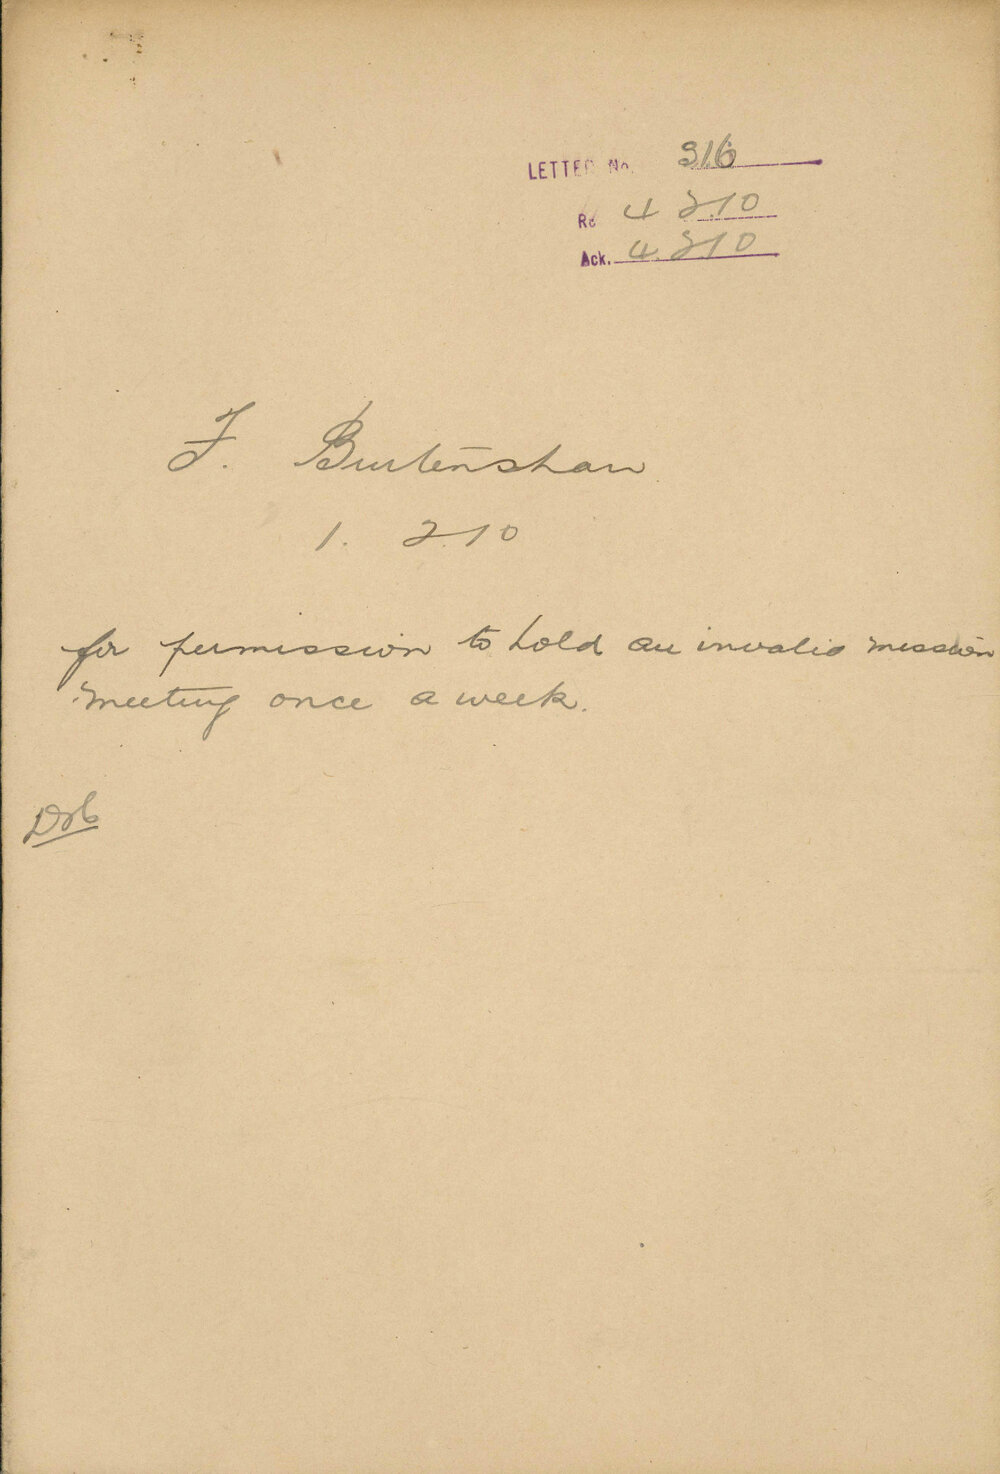 LETTER No. 316
Re 4 2.10
Ack. 4. 2.10
F. Burtenshaw
1. 2.10
for permission to hold an invalid mission
meeting once a week.